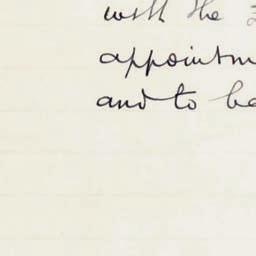 with the
appointm
and to be